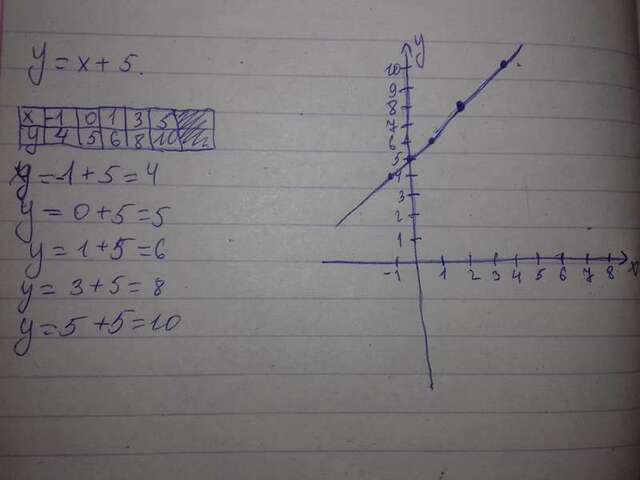 y = x + 5.
x -1 0 1 3 5
y 4 5 6 8 10
y = -1 + 5 = 4
y = 0 + 5 = 5
y = 1 + 5 = 6
y = 3 + 5 = 8
y = 5 + 5 = 10
y
10
9
8
7
6
5
4
3
2
1
-1 1 2 3 4 5 6 7 8 x